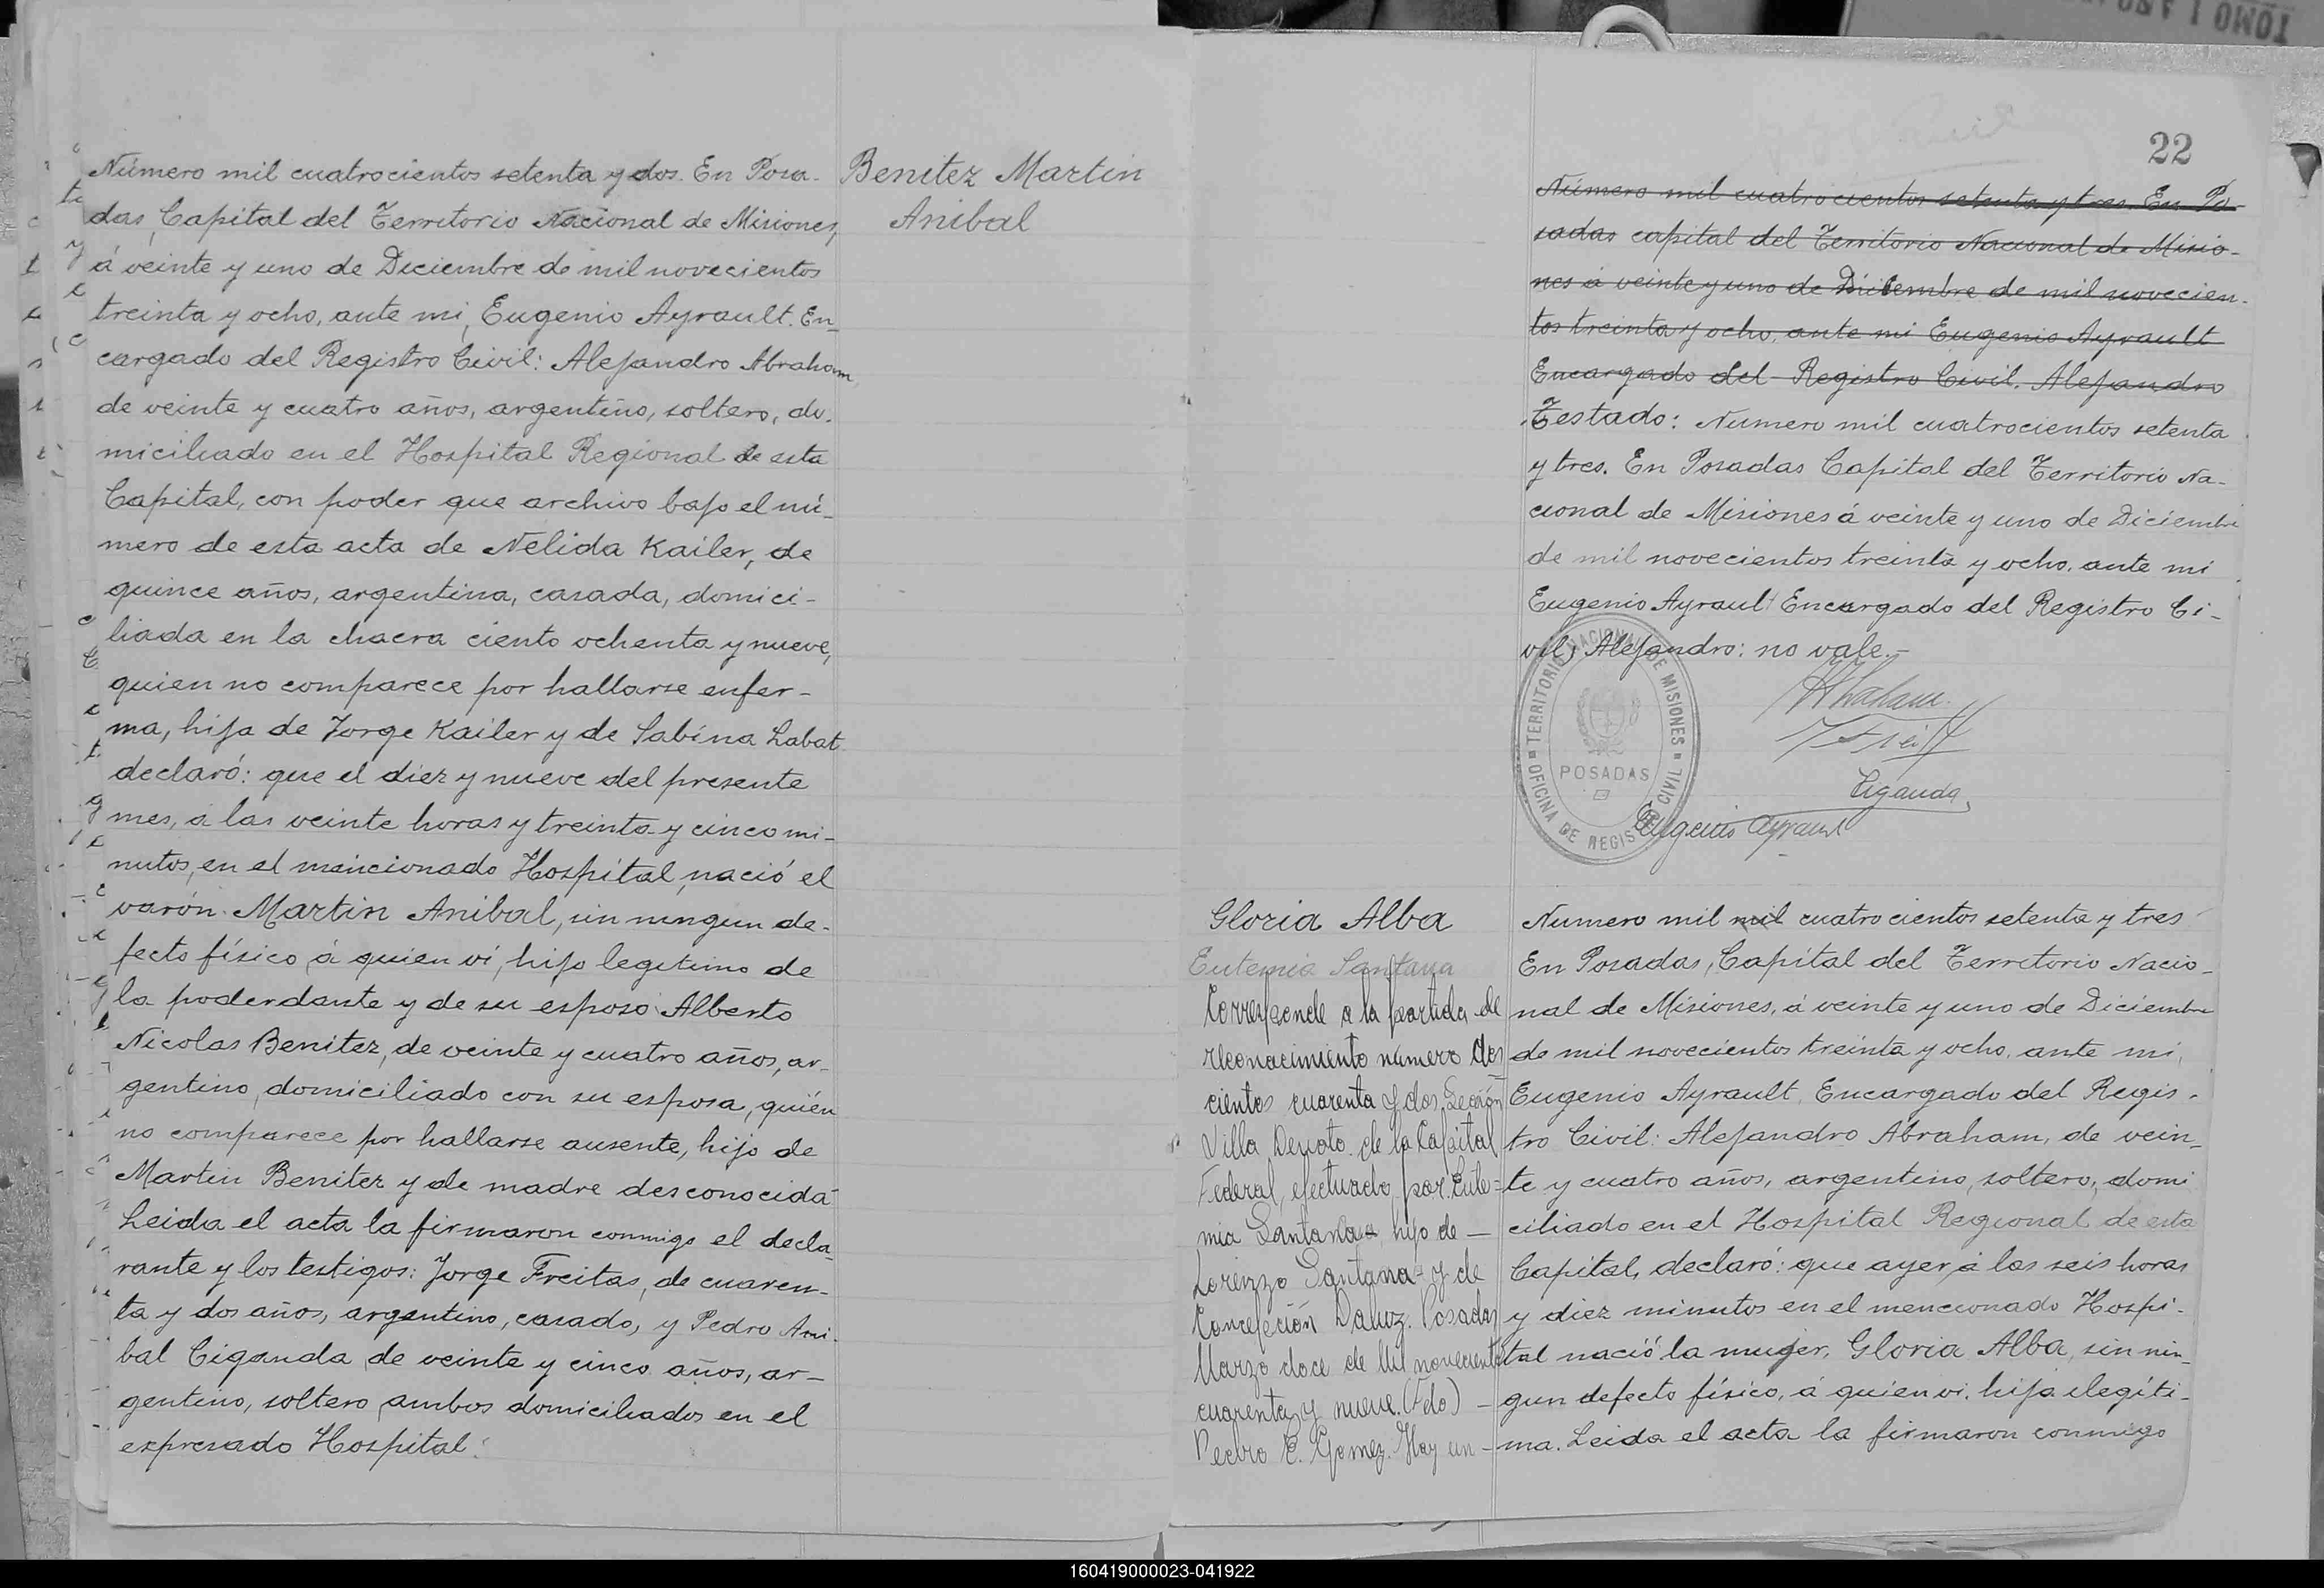 Número mil cuatrocientos setenta y dos. En Posa-
das, Capital del Territorio Nacional de Misiones,
á veinte y uno de Diciembre de mil novecientos
treinta y ocho, ante mi, Eugenio Ayrault. En-
cargado del Registro Civil: Alejandro Abraham,
de veinte y cuatro años, argentino, soltero, do-
miciliado en el Hospital Regional de esta
Capital, con poder que archivo bajo el nú-
mero de esta acta de Nelida Kailer, de
quince años, argentina, casada, domici-
liada en la chacra ciento ochenta y nueve,
quien no comparece por hallarse enfer-
ma, hija de Jorge Kailer y de Sabina Labat
declaró: que el diez y nueve del presente
mes, á las veinte horas y treinta y cinco mi-
nutos, en el mencionado Hospital, nació el
varón Martin Anibal, sin ningun de-
fecto físico, á quien ví, hijo legitimo de
la poderdante y de su esposo Alberto
Nicolas Benitez, de veinte y cuatro años, ar-
gentino, domiciliado con su esposa, quién
no comparece por hallarse ausente, hijo de
Martin Benitez y de madre desconocida
Leida el acta la firmaron conmigo el decla-
rante y los testigos: Jorge Freitas, de cuaren-
ta y dos años, argentino, casado, y Pedro Ani-
bal Ciganda de veinte y cinco años, ar-
gentino, soltero ambos domiciliados en el
expresado Hospital.
Benitez Martin
Anibal
TOMO I AÑO
22
Número mil cuatrocientos setenta y tres. En Po-
sadas capital del Territorio Nacional de Misio-
nes á veinte y uno de Diciembre de mil novecien-
tos treinta y ocho, ante mi Eugenio Ayrault
Encargado del Registro Civil. Alejandro
Testado: Numero mil cuatrocientos setenta
y tres. En Posadas Capital del Territorio Na-
cional de Misiones á veinte y uno de Diciembre
de mil novecientos treinta y ocho, ante mi
Eugenio Ayrault Encargado del Registro Ci-
vil, Alejandro: no vale.-
TERRITORIO NACIONAL DE MISIONES
POSADAS
OFICINA DE REGISTRO CIVIL
Ciganda
Eugenio Ayrault
Gloria Alba
Eutemia Santana
Corresponde a la partida de
reconocimiento número dos
cientos cuarenta y dos, Sección
Villa Devoto de la Capital
Federal, efectuado por Eute-
mia Santana hijo de —
Lorenzo Santana y de
Concepción Daluz. Posadas
Marzo doce de Mil novecientos
cuarenta y nueve. (Fdo) —
Pedro E. Gomez. Hay un —
Numero mil mil cuatrocientos setenta y tres
En Posadas, Capital del Territorio Nacio-
nal de Misiones, á veinte y uno de Diciembre
de mil novecientos treinta y ocho, ante mi,
Eugenio Ayrault, Encargado del Regis-
tro Civil: Alejandro Abraham, de vein-
te y cuatro años, argentino, soltero, domi
ciliado en el Hospital Regional de esta
Capital, declaró: que ayer, á las seis horas
y diez minutos en el mencionado Hospi-
tal nació la mujer, Gloria Alba, sin nin-
gun defecto físico, á quien vi, hija ilegíti-
ma. Leida el acta la firmaron conmigo
160419000023-041922